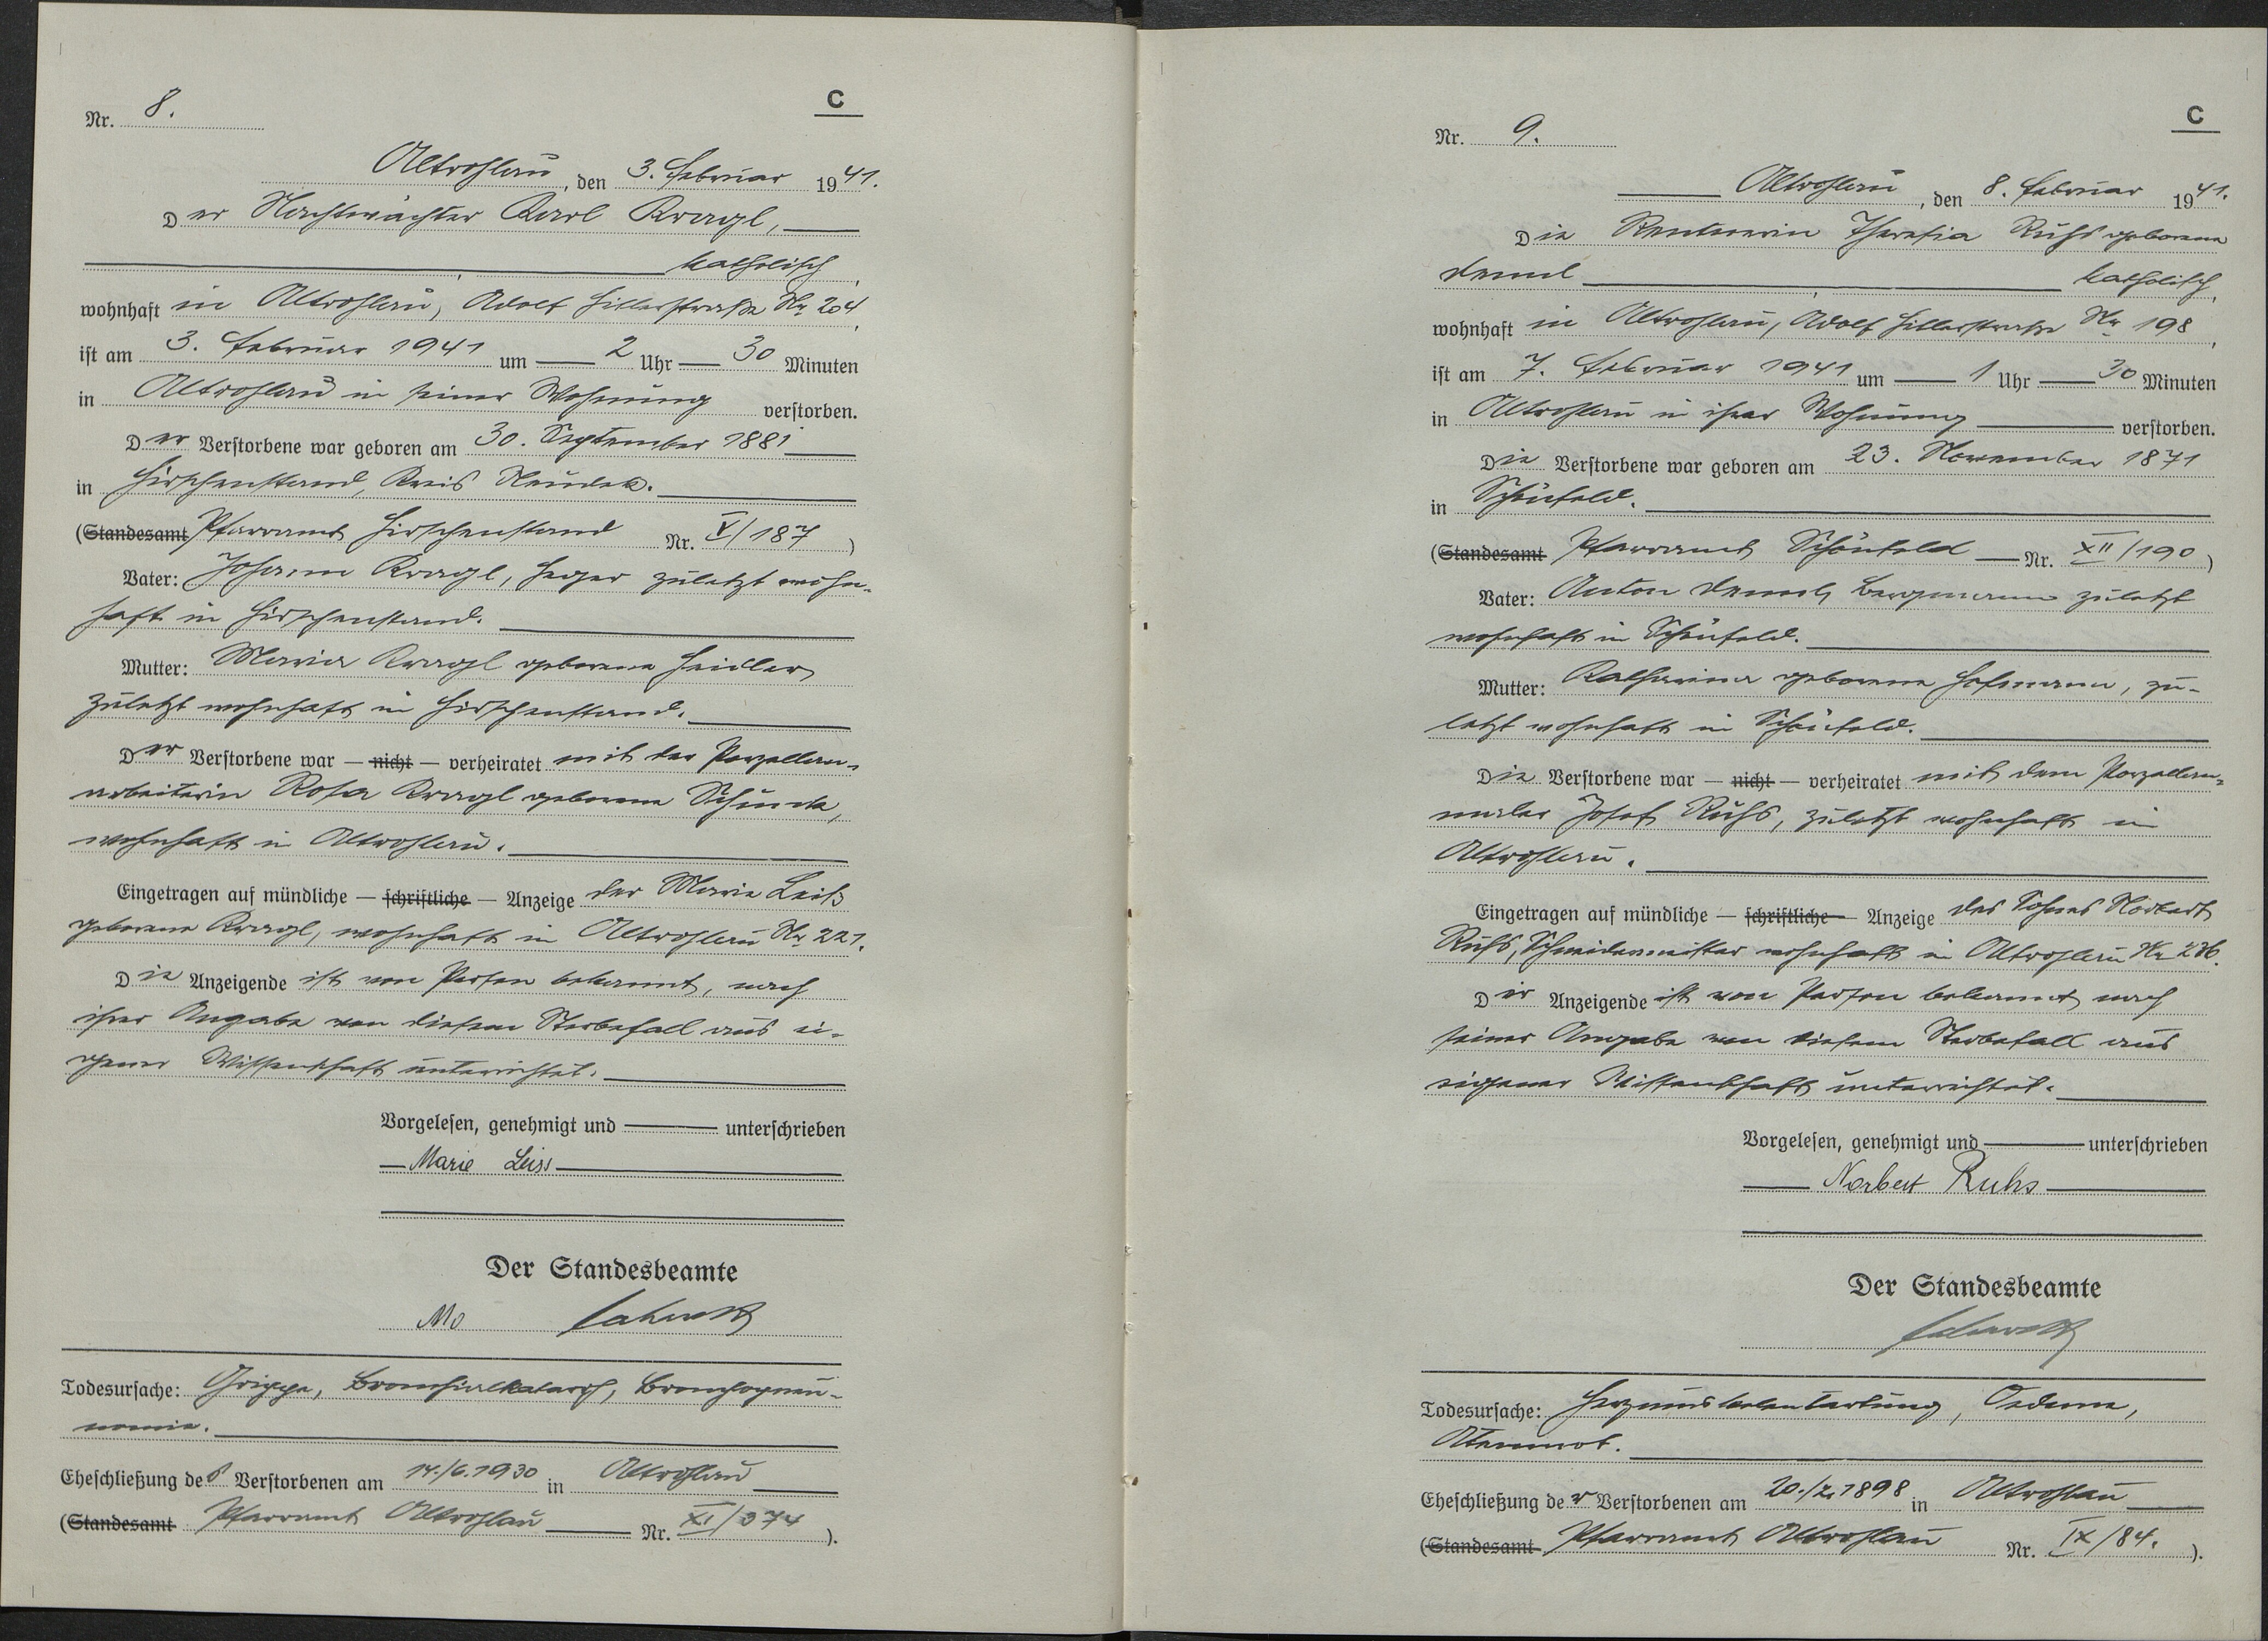 C
Nr. 8.
Altrohlau, den 3. Februar 1941.
Der Nachtwächter Karl Kragl,
, katholisch,
wohnhaft in Altrohlau, Adolf Hitlerstraße Nr 204,
ist am 3. Februar 1941 um 2 Uhr 30 Minuten
in Altrohlau in seiner Wohnung verstorben.
Der Verstorbene war geboren am 30. September 1881
in Hirschenstand, Kreis Neudek.
(Standesamt Pfarramt Hirschenstand Nr. V/187)
Vater: Johann Kragl, Heger zuletzt wohn-
haft in Hirschenstand.
Mutter: Maria Kragl geborene Heidler,
zuletzt wohnhaft in Hirschenstand.
Der Verstorbene war — nicht — verheiratet mit der Porzellan-
arbeiterin Rosa Kragl geborene,
wohnhaft in Altrohlau.
Eingetragen auf mündliche — schriftliche — Anzeige der Marie Leiß
geborene Kragl, wohnhaft in Altrohlau Nr 221.
Die Anzeigende ist von Person bekannt, nach
ihrer Angabe von diesem Sterbefall aus ei-
gener Wissenschaft unterrichtet.
Vorgelesen, genehmigt und unterschrieben
Marie Leiss
Der Standesbeamte
Todesursache: Grippe, Bronchialkatarrh, Bronchopneu-
monie.
Eheschließung des Verstorbenen am 14./6.1930 in Altrohlau
(Standesamt Pfarramt Altrohlau Nr. XI/374).
C
Nr. 9.
Altrohlau, den 8. Februar 1941.
Die Rentnerin Theresia Ruhs geborene
Deml, katholisch,
wohnhaft in Altrohlau, Adolf Hitlerstraße Nr 198,
ist am 7. Februar 1941 um 1 Uhr 30 Minuten
in Altrohlau in ihrer Wohnung verstorben.
Die Verstorbene war geboren am 23. November 1871
in Schönfeld.
(Standesamt Pfarramt Schönfeld Nr. XII/190)
Vater: Anton Deml, Bergmann zuletzt
wohnhaft in Schönfeld.
Mutter: Katharina geborene Hofmann, zu-
letzt wohnhaft in Schönfeld.
Die Verstorbene war — nicht — verheiratet mit dem Porzellan-
maler Josef Ruhs, zuletzt wohnhaft in
Altrohlau.
Eingetragen auf mündliche — schriftliche — Anzeige des Sohnes Norbert
Ruhs, Schneidermeister wohnhaft in Altrohlau Nr
Der Anzeigende ist von Person bekannt nach
seiner Angabe von diesem Sterbefall aus
eigener Wissenschaft unterrichtet.
Vorgelesen, genehmigt und unterschrieben
Norbert Ruhs
Der Standesbeamte
Todesursache: Herzmuskelentartung, Oedeme,
Atemnot.
Eheschließung der Verstorbenen am 20./2.1898 in Altrohlau
(Standesamt Pfarramt Altrohlau Nr. IX/84.).